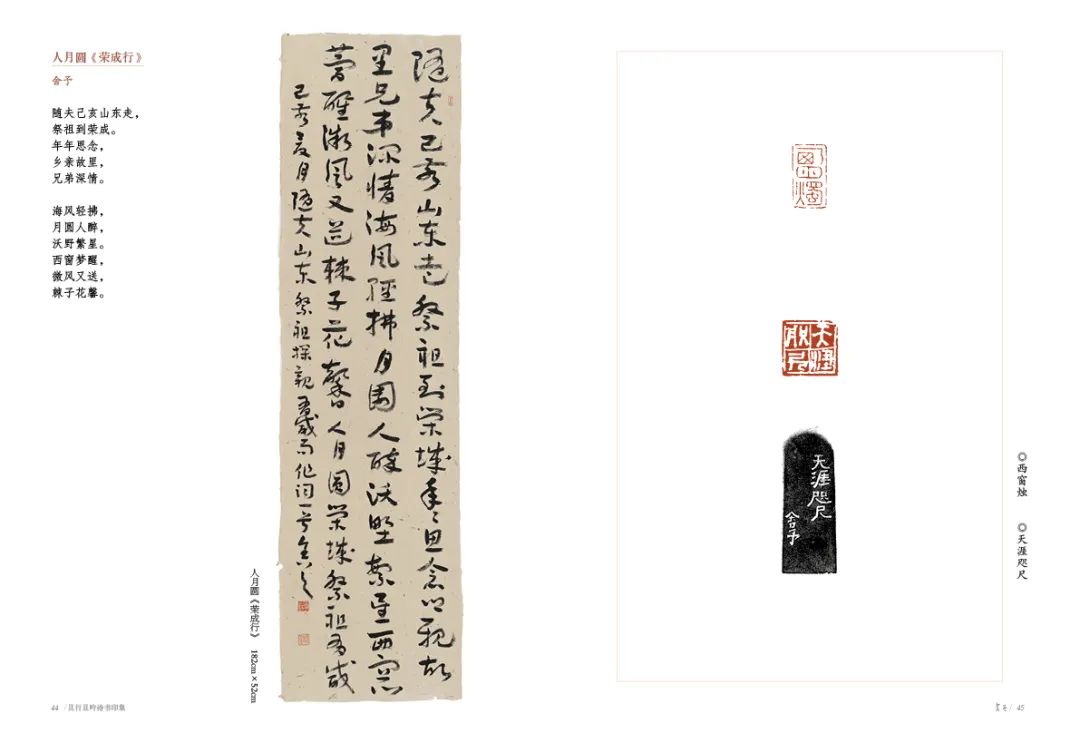 人月圆《荣成行》
舍予
随夫己亥山东走，
祭祖到荣成。
年年思念，
乡亲故里，
兄弟深情。
海风轻拂，
月圆人醉，
沃野繁星。
西窗梦醒，
微风又送，
棘子花馨。
随夫己亥山东走祭祖到荣城年年思念乡亲故
里兄弟深情海风轻拂月圆人醉沃野繁星西窗
梦醒微风又送棘子花馨人月圆荣城祭祖有感
己亥夏月随夫山东祭祖探亲有感而作词一首舍予
人月圆《荣成行》 182cm×52cm
44 / 且行且吟诗书印集
西窗烛
天涯咫尺
天涯咫尺
舍予
◎西窗烛
◎天涯咫尺
/ 45